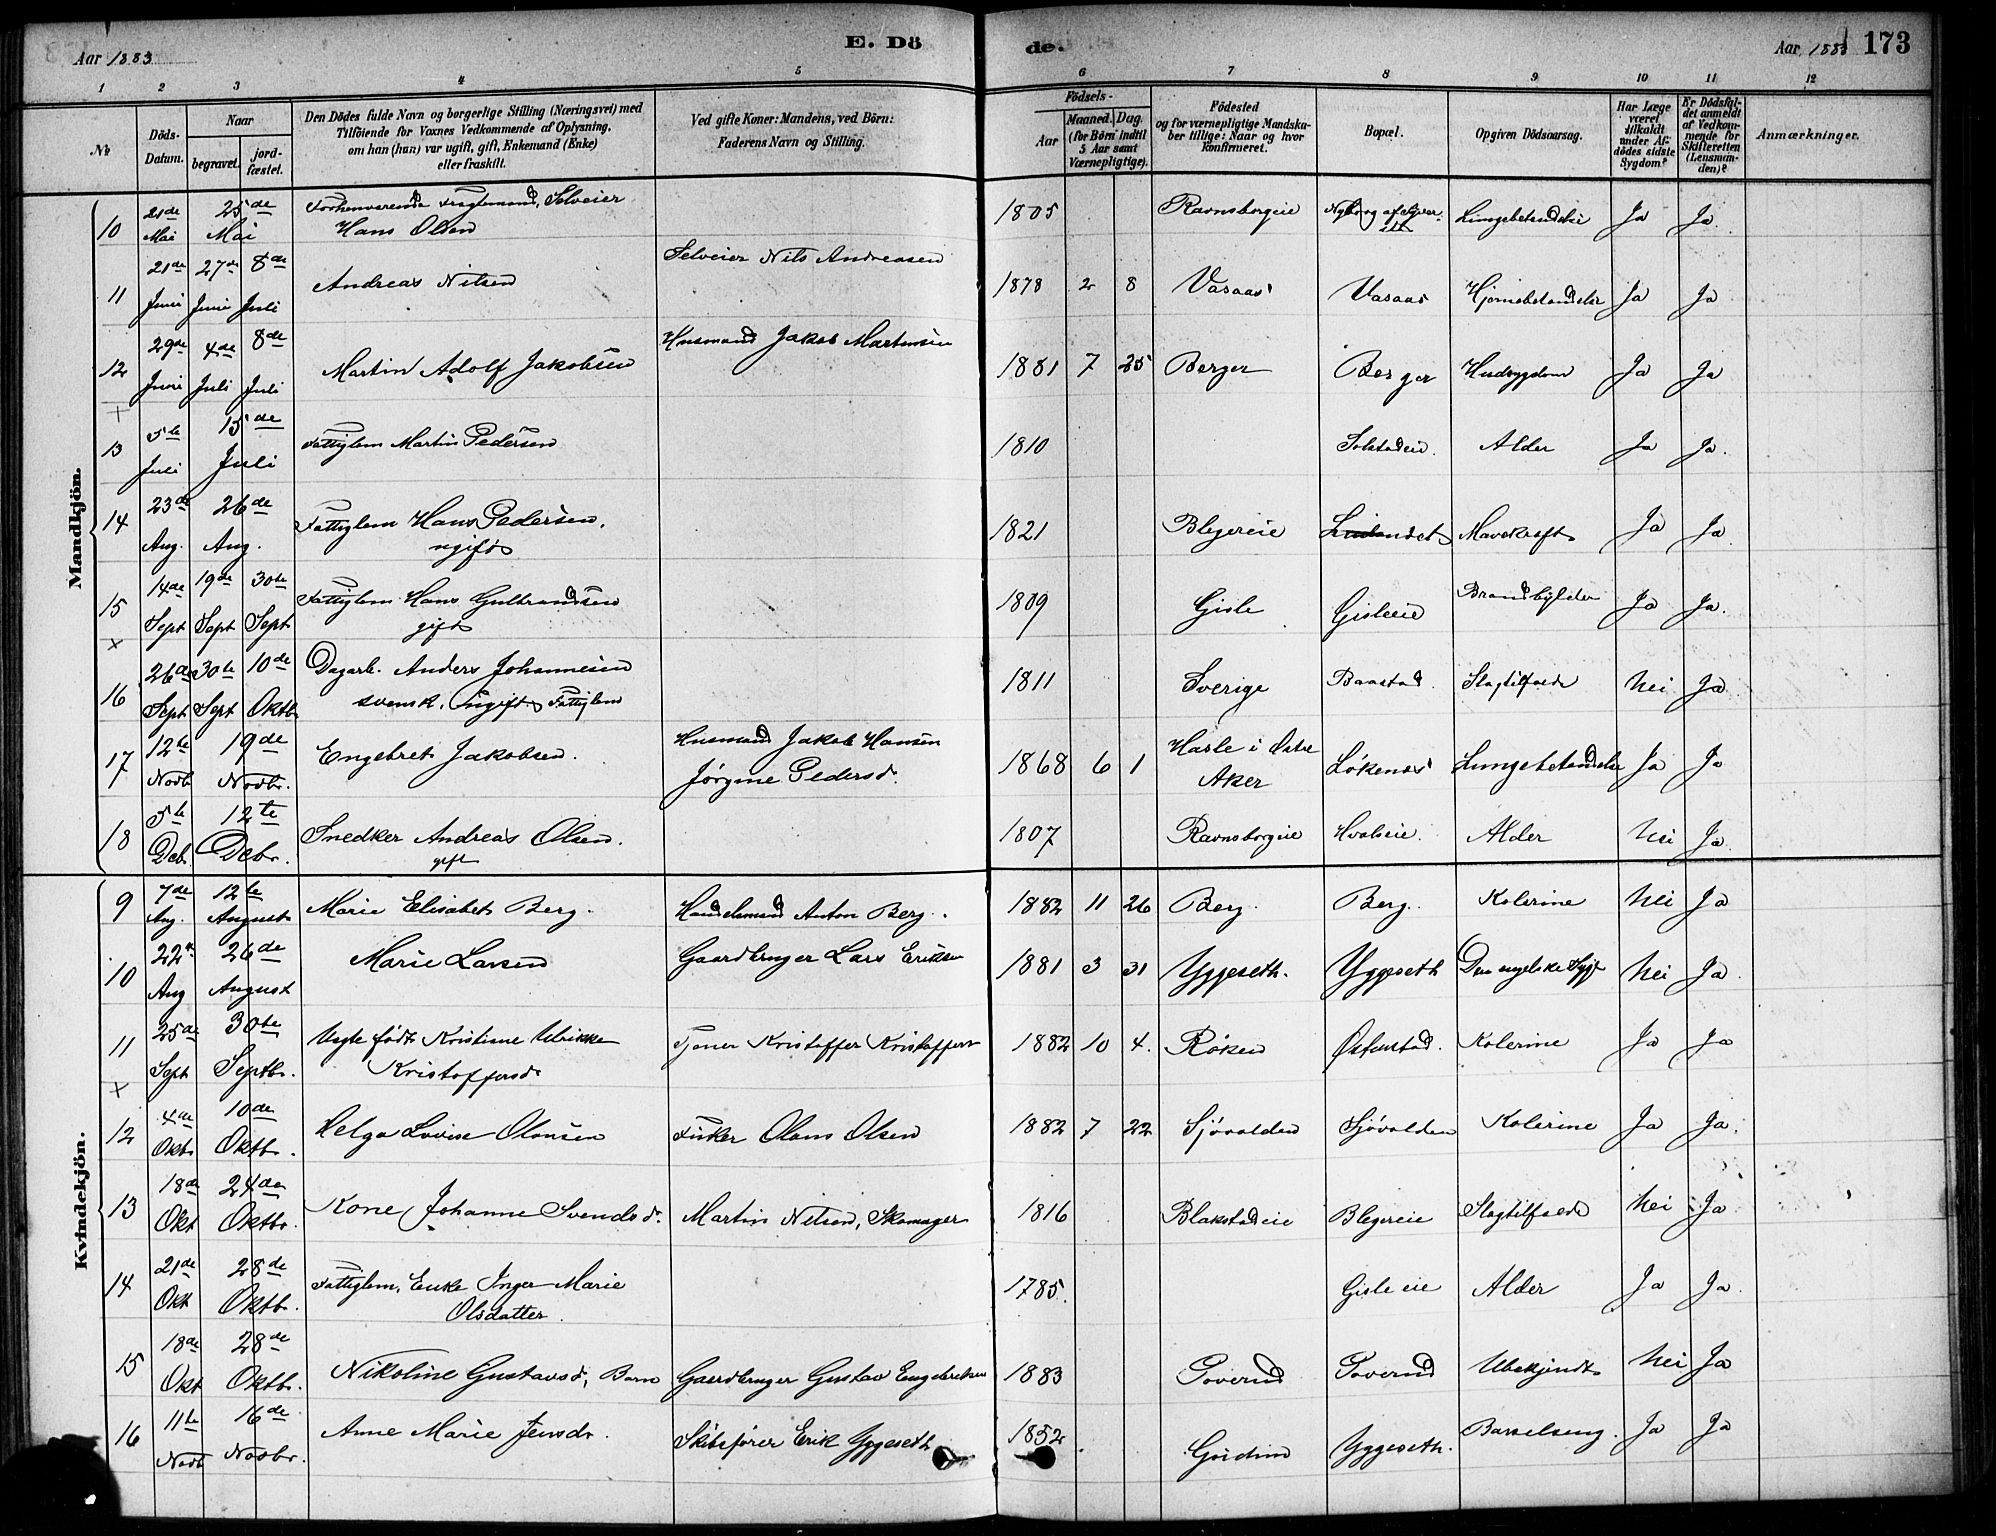 Aar 1883
E. Dö
de.
Aar 1883 173
1 2 3 4 5 6 7 8 9 10 11 12
№
Döds-Datum.
Naar
begravet.
jord-fæstet.
Den Dödes fulde Navn og borgerlige Stilling (Næringsvei) med
Tilföiende for Voxnes Vedkommende af Oplysning,
om han (hun) var ugift, gift, Enkemand (Enke)
eller fraskilt.
Ved gifte Koner: Mandens, ved Börn:
Faderens Navn og Stilling.
Födsels-
Aar
Maaned. Dag.
(for Börn indtil
5 Aar samt
Værnepligtige).
Födested
og for værnepligtige Mandska-
ber tillige: Naar og hvor
konfirmeret.
Bopæl.
Opgiven Dödsaarsag.
Har Læge
været
tilkaldt
under Af-
dödes sidste
Sygdom?
Er Dödsfal-
det anmeldt
af Vedkom-
mende for
Skifteretten
(Lensman-
den)?
Anmærkninger.
Mandkjön.
10 21de Mai 25de Mai Selveier Hans Olsen 1805 Ravnsborgeie Lungebetændelse Ja Ja.
11 21de Juni 27de Juni 8de Juli Andreas Nilsen Selveier Nils Andreasen 1878 2 8 Vasaas Vasaas Hjernebetændelse Ja Ja
12 29de Juni 4de Juli 8de Juli Martin Adolf Jakobsen Husmand Jakob Martinsen 1881 7 25 Berger Berger Hudsygdom Ja Ja
13 5te Juli 15de Juli Fattiglem Martin Pedersen 1810 Solstadeie. Alder Ja Ja.
14 23de Aug. 26de Aug. Fattiglem Hans Pedersen, ugift 1821 Blegereie Mavekræft Ja Ja
15 14de Sept 19de Sept 30te Sept Fattiglem Hans Gulbrandsen gift 1809 Gisle Gisleeie Brandbylder Ja Ja.
16 26de Sept 30te Sept 10de Oktb. Dagarb. Anders Johannesen svensk. ugift Fattiglem 1811 Sverige Baastad Slagtilfælde Nei Ja
17 12te Novb 19de Novbr. Engebret Jakobsen. Husmand Jakob Hansen Jørgine Pedersd. 1868 6 1 Hasle i Østre Aker Løkenes Lungebetændelse Ja Ja
18 5te Deb. 12te Debr. Snedker Andreas Olsen. gift 1807 Ravnsborgeie Hvalseie. Alder Nei Ja.
Kvindekjön.
9 7de Aug. 12te August Marie Elisabet Berg. Handelsmand Anton Berg. 1882 11 26 Berg. Berg. Kolerine Nei Ja
10 22de Aug 26de August Marie Larsen Gaardbruger Lars Eriksen 1881 3 31 Yggeseth. Yggeseth Den engelske Syge Nei Ja
11 25de Sept 30te Septbr. Uægte født Kristine Ulrikke Kristoffersdr Tjener Kristoffer Kristoffersen 1882 10 4. Røken Østenstad. Kolerine Ja Ja
12 4de Oktb 10de Oktbr. Helga Lovise Olausen Fisker Olaus Olsen 1882 7 22 Sjøvolden Sjøvolden Kolerine Ja Ja.
13 18de Okt 24de Oktbr. Kone Johanne Svendsdr. Martin Nilsen, Skomager 1816 Blakstadeie Blegereie Slagtilfælde Nei Ja
14 21de Okt 28de Oktbr. Fattiglem, Enke Inger Marie Olsdatter. 1785. Gisleeie Alder Ja Ja.
15 18de Okt 28de Oktbr. Nikoline Gustavsd, Barn Gaardbruger Gustav Engebretsen 1883 Goverud Goverud Ubekjendt Nei Ja
16 11te Novb 16de Novbr. Anne Marie Jensdr. Skibsfører Erik Yggeseth 1852 Yggeseth. Barselseng. Ja Ja